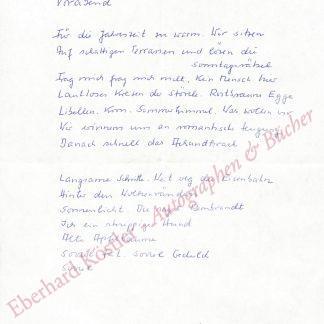 Vorabend
Für die Jahreszeit zu warm. Wir sitzen
Auf schattigen Terrassen und lösen die
Sonntagsrätsel
Frag mich frag mich nicht. Kein Mensch. Nur
Lautloses Kreisen der Störche. Rostbraune Egge
Libellen. Korn. Sommerhimmel. Was wollen wir
Wir erinnern uns an romantische
Danach schnell das
Langsame Schritte. Weit weg die Eisenbahn
Hinter den Wolkenwänden
Sonnenlicht. Rembrandt
Ein struppiger Hund
Alte Apfelbäume
soviel Geduld
Eberhard Köstler - Autographen & Bücher